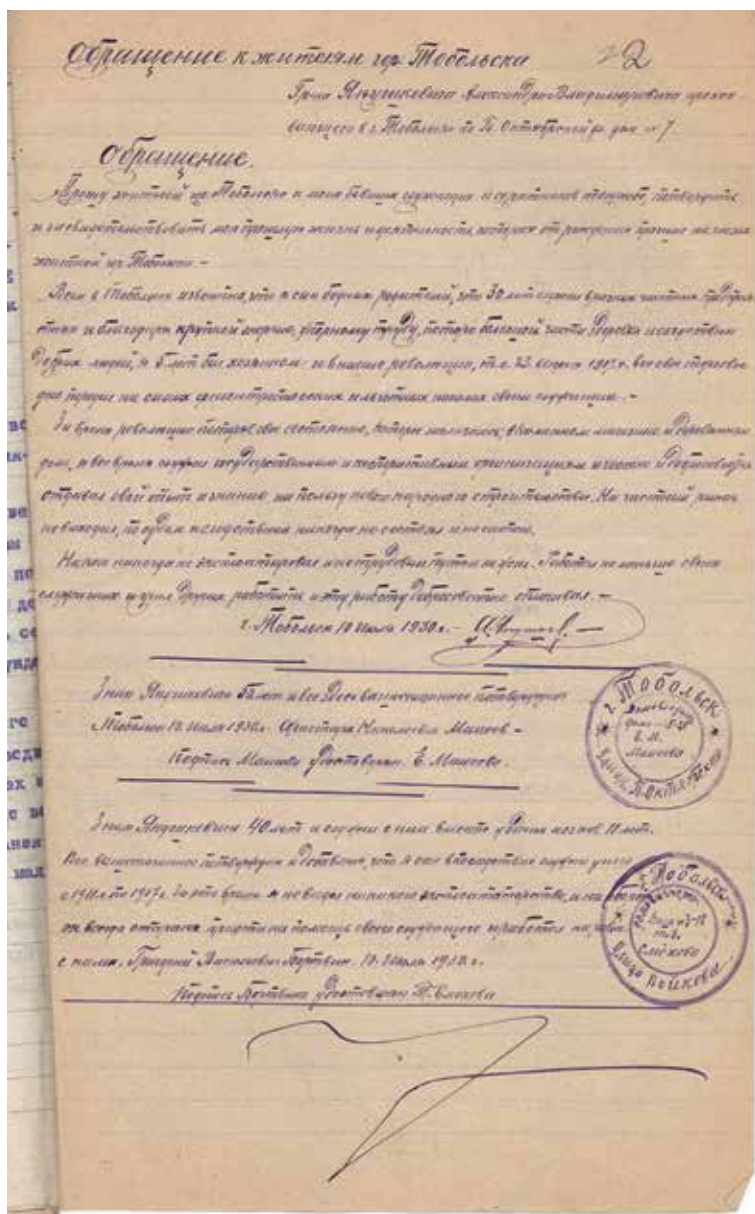 Обращение к жителям гор. Тобольска 2
Гр-на Янушкевича Александра Владимировича прожи-
вающего в г. Тобольске по Б. Октябрьской ул. дом № 7
Обращение.
Прошу жителей гор. Тобольска и моих бывших служащих и соратников подтвердить
и засвидетельствовать мою прошлую жизнь и деятельность, которая от рождения прошла на глазах
жителей гор. Тобольска. –
Всем в Тобольске известно, что я сын бедных родителей, что 30 лет служил в разных частных предприя-
тиях и благодаря крупной энергии, упорному труду, потере большой части здоровья и сочувствию
добрых людей, я 5 лет был хозяином и в начале революции, т.е. 23 1917 г. все свое торговое
дело передал на своих своим служащим. –
За время революции потерял все состояние, которое заключалось в каменном магазине и деревянном
доме, и все время служил государственным и кооперативным организациям и честно и добросовестно
отдавал свой опыт и знание на пользу нового народного строительства. На частный рынок
не выходил, под судом и следствием никогда не состоял и не состою.
Никого никогда не эксплоатировал и нетрудовым путем не жил. Работал не меньше своих
служащих и учил других работать и эту работу добросовестно оплачивал. –
г. Тобольск 10 Июля 1930 г. –
Знаю Янушкевича лет и все вышеизложенное подтверждаю
Тобольск 10 Июля 1930 г. –
Подпись Машева удостоверяю. Е. Машева.
г. Тобольск
Е. М.
Машева
Улица Б. Октябрьская
Знаю Янушкевича 40 лет и служил с ним вместе у 11 лет.
Все вышеизложенное подтверждаю и добавляю, что я сам впоследствии служил у него
с 1911 г. по 1917 г. За это время я не видел никакого эксплоататорства, и на
он всегда отвечал помощь своего служащего и работал наравне
с нами. Григорий Васильевич 10 Июля 1930 г.
Подпись удостоверяю Т. Слохова
г. Тобольск
Т. З.
Слохова
Улица Войкова